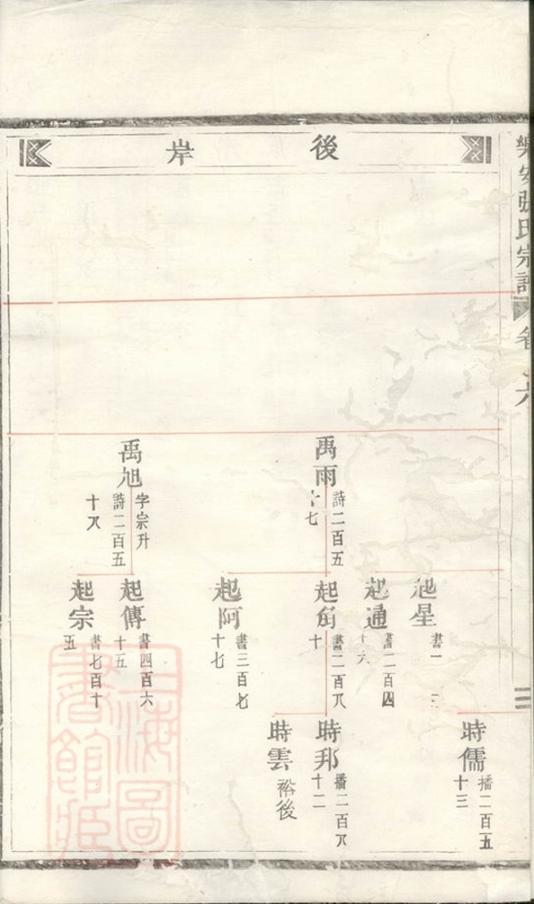 樂安張氏宗譜
卷六
後岸
禹雨
詩二百五
十七
禹旭
字宗升
詩二百五
十八
起星
書一
起通
書二百四
十六
起角
書二百八
十
起阿
書三百七
十七
起傳
書四百六
十五
起宗
書七百十
五
時儒
播二百五
十三
時邦
播二百八
十二
時雲
裕後
上海圖
書館藏